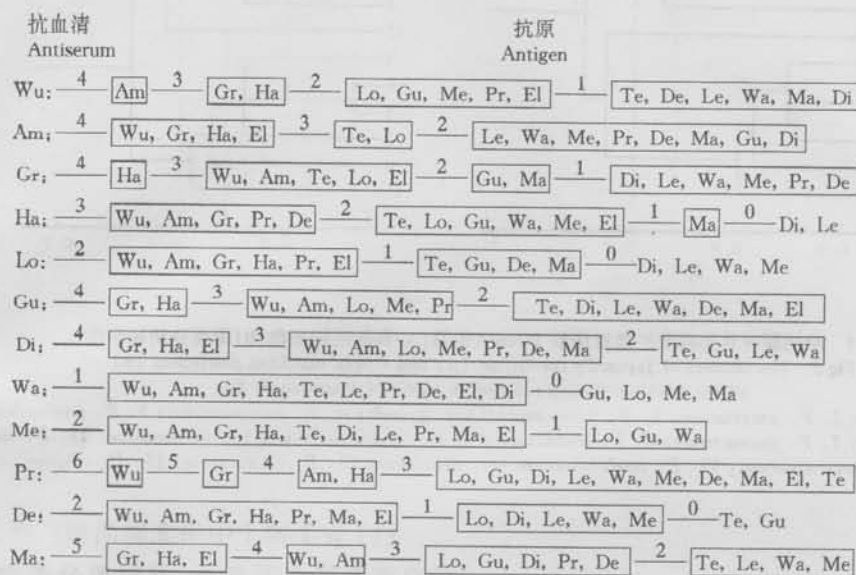 抗血清 抗原
Antiserum Antigen
Wu: 4 Am 3 Gr, Ha 2 Lo, Gu, Me, Pr, El 1 Te, De, Le, Wa, Ma, Di
Am: 4 Wu, Gr, Ha, El 3 Te, Lo 2 Le, Wa, Me, Pr, De, Ma, Gu, Di
Gr: 4 Ha 3 Wu, Am, Te, Lo, El 2 Gu, Ma 1 Di, Le, Wa, Me, Pr, De
Ha: 3 Wu, Am, Gr, Pr, De 2 Te, Lo, Gu, Wa, Me, El 1 Ma 0 Di, Le
Lo: 2 Wu, Am, Gr, Ha, Pr, El 1 Te, Gu, De, Ma 0 Di, Le, Wa, Me
Gu: 4 Gr, Ha 3 Wu, Am, Lo, Me, Pr 2 Te, Di, Le, Wa, De, Ma, El
Di: 4 Gr, Ha, El 3 Wu, Am, Lo, Me, Pr, De, Ma 2 Te, Gu, Le, Wa
Wa: 1 Wu, Am, Gr, Ha, Te, Le, Pr, De, El, Di 0 Gu, Lo, Me, Ma
Me: 2 Wu, Am, Gr, Ha, Te, Di, Le, Pr, Ma, El 1 Lo, Gu, Wa
Pr: 6 Wu 5 Gr 4 Am, Ha 3 Lo, Gu, Di, Le, Wa, Me, De, Ma, El, Te
De: 2 Wu, Am, Gr, Ha, Pr, Ma, El 1 Lo, Di, Le, Wa, Me 0 Te, Gu
Ma: 5 Gr, Ha, El 4 Wu, Am 3 Lo, Gu, Di, Pr, De 2 Te, Le, Wa, Me